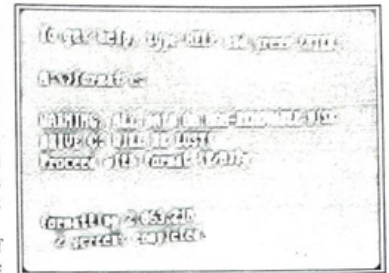 To get help, type HELP and press ENTER.
A:\>format c:
WARNING, ALL DATA ON NON-REMOVABLE DISK
DRIVE C: WILL BE LOST!
Proceed with Format (Y/N)?y
Formatting 2
percent completed.